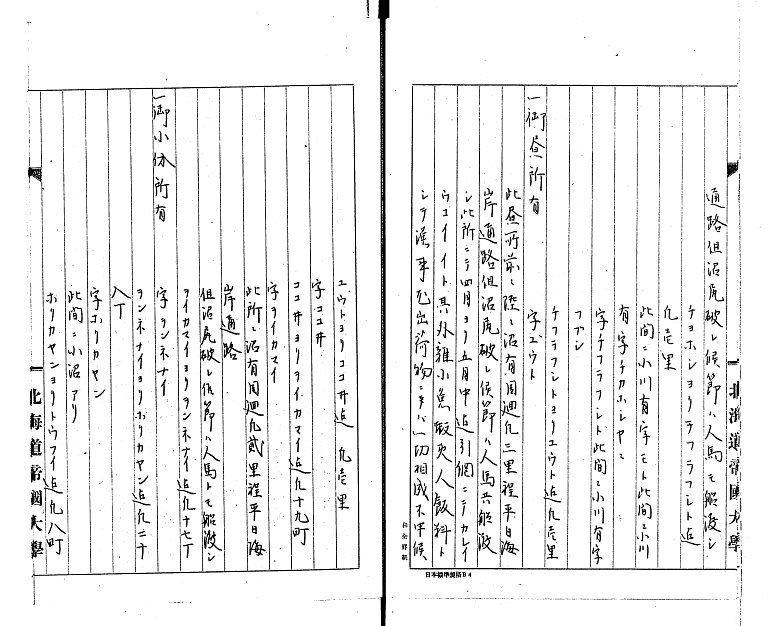 通路但沼尻破レ候節ハ人馬トモ船渡シ
チヨホシヨリチフラフシト迄
凡壱里
此間ニ小川有字モト此間ニ小川
有字チカホシヤニ
字チフラフシト此間ニ小川有字
フプシ
チフラフシトヨリユウト迄凡壱里
字ユウト
一御昼所有
此昼所前ニ陸ニ沼有周廻凡三里程平日海
岸通路但沼尻破レ候節ハ人馬共船渡
シ此所ニテ四月ヨリ五月中迄引網ニテカレイ
ウコイイト其外雑小魚取夷人飯料ト
シテ漁事尤出荷物ニ
一切相成不申候
日本標準規格B4
北海道帝國大學
ユウトヨリココ井迄凡壱里
字ココ井
ココ井ヨリヲイカマイ迄凡十九町
字ヲイカマイ
此所ニ沼有周廻凡貳里程平日海
岸通路
但沼尻破レ候節ハ人馬トモ船渡シ
ヲイカマイヨリヲンネナイ迄凡十七丁
字ヲンネナイ
一御小休所有
ヲンネナイヨリホリカヤン迄凡二十
八丁
字ホリカヤン
此間ニ小沼アリ
ホリカヤンヨリトウフイ迄凡八町
北海道帝國大學